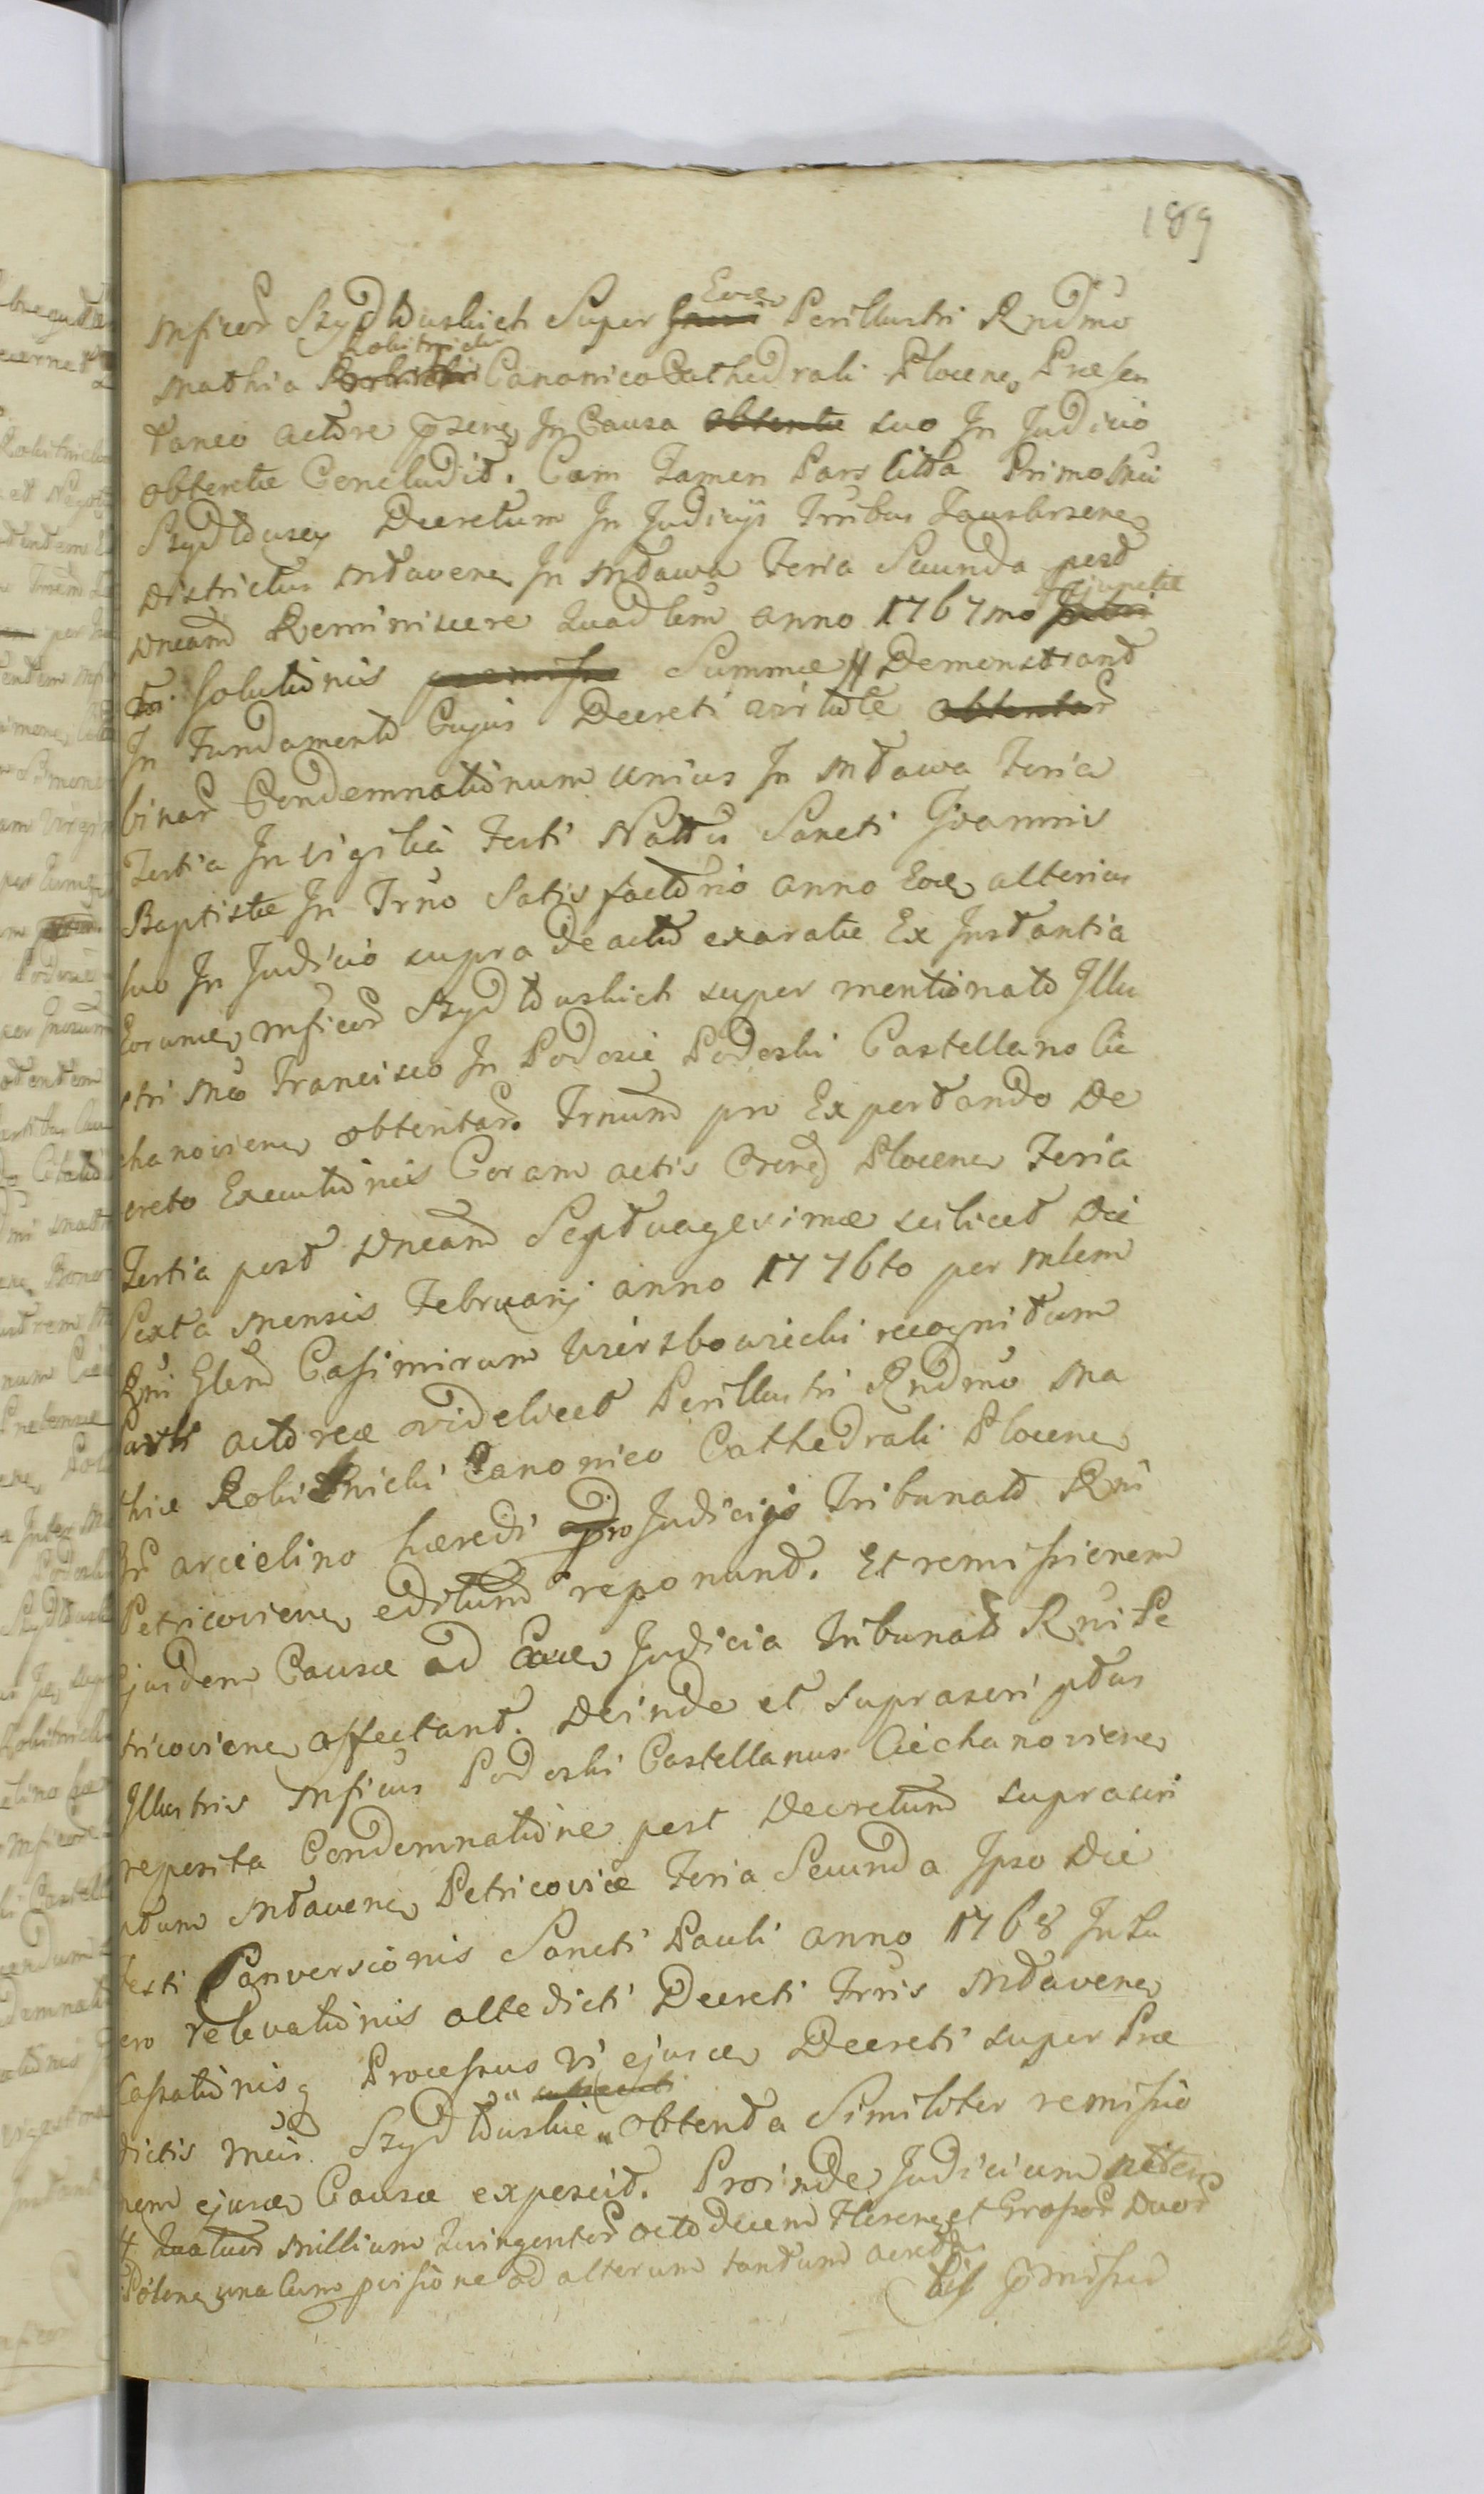 189
Mficor Szydłowskich Super Eodem Perillustri Rndmo
Mathia Robitnicki Canonico Cathedrali Plocen Præsen
taneo actore pszen In Causa obtentæ suo In Judicio
obtentæ Concludit. Cum Tamen Pars citta Primo Mci
Szydłowscy Decretum In Judicijs Trribus Zauskrsen
Districtus Mławen In Mława Feria Secunda post
Dncam Reminiscere Quadlem anno 1767mo Injunctæ
Solutionis Summæ # Demonstrant
In Fundamento Cujus Decreti virtute
binar Condemnationum unius In Mława Feria
Tertia In vigilia Festi Nattis Sancti Joannis
Baptistæ In Trno Satisfactorio anno Eoe alterius
suo In Judicio supra de actu exaratæ Ex Instantia
Eorum Mficor Szydłowskich super mentionato Illu
stri Mco Francisco In Podosie Podoski Castellano Cie
chanovien obtentar. Trnum pro Exportando De
creto Executionis Coram actis Crend Plocen Feria
Tertia post Dncam Septuagesimæ scilicet Die
Sexta Mensis Februarij anno 1776to per Mlem
Rni Glem Casimirum Wierzbowicki recognitum
Parti actoreæ videlicet Perillustri Rndmo Ma
thiæ Robitnicki Canonico Cathedrali Plocen
Br arcelino hæredi pro Judicijs Tribunal Rni
Petricovien editum reponunt. Et remissionem
Ejusdem Causæ ad Eadem Judicia Tribunal Rni Pe
tricovien affectant. Deinde et suprascriptus
Illustris Mficus Podoski Castellanus Ciechanovien
reposita Condemnatione post Decretum suprascri
ptum Mławen Petricoviæ Feria Secunda Ipso Die
festi Conversionis Sancti Pauli anno 1768 In Lu
cro relevationis alte dicti Decreti Trris Mławen
Cassationisq Processus vi ejusce Decreti super Præ
dictis Mcis Szydłowskie obtenta Similiter remissio
nem ejusce Causæ exposcit. Proinde Judicium
# Quatuor Millium Quingentor octodecim Floren et Grossor Duor
Polon una Cum provisione ad alterum tantum
præmissis